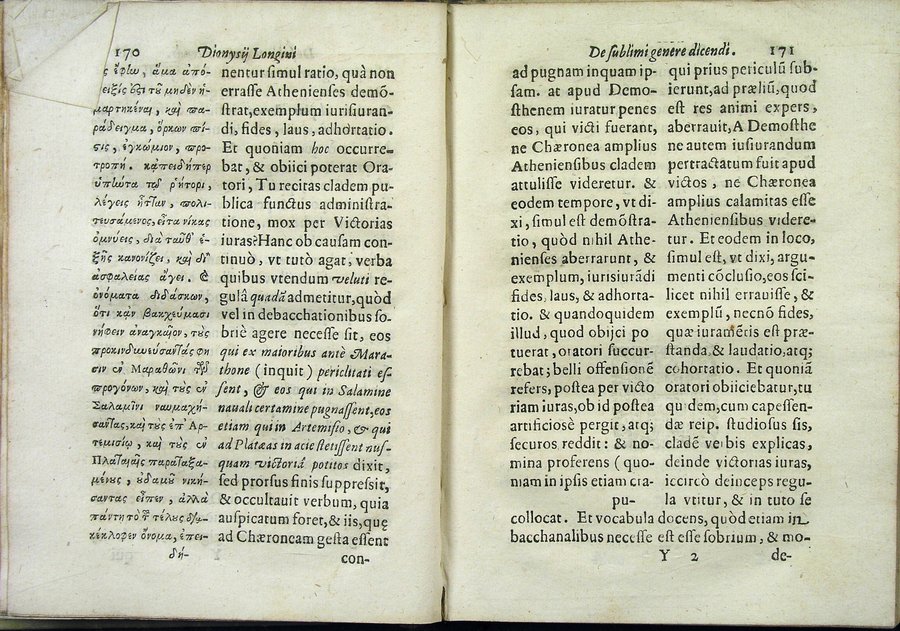 170 Dionysij Longini
ς ἐφίω, ἅμα ἀπό-
δειξις ὅτι τοῦ μηδὲν ἡ-
μαρτηκέναι, καὶ πα-
ράδειγμα, ὅρκων πί-
σις, ἐγκώμιον, προ-
τροπή. κἀπειδήπερ
λέγεις ἧτταν, πολι-
τευσάμενος, εἶτα νίκας
ὀμνύεις, διὰ ταῦθ' ἑ-
ξῆς κανονίζει, καὶ δι'
ἀσφαλείας ἄγει.
ὀνόματα διδάσκων,
ὅτι κἂν βακχεύμασι
νήφειν ἀναγκαῖον, τοὺς
προκινδυνεύσαντας φη
σιν ἐν Μαραθῶνι τῶν
προγόνων, καὶ τοὺς ἐν
Σαλαμῖνι ναυμαχή-
σαντας, καὶ τοὺς ἐπ' Ἀρ-
τεμισίῳ, καὶ τοὺς ἐν
Πλαταιαῖς παραταξα-
μένους, οὐδαμοῦ νική-
σαντας εἶπεν, ἀλλὰ
πάντη τὸ τοῦ τέλους δια-
κέκλοφεν ὄνομα, ἐπει-
δή-
nentur simul ratio, quà non
errasse Athenienses demō-
strat, exemplum iurisiuran-
di, fides, laus, adhortatio.
Et quoniam hoc occurre-
bat, & obiici poterat Ora-
tori, Tu recitas cladem pu-
blica functus administra-
tione, mox per Victorias
iuras? Hanc ob causam con-
tinuò, vt tutò agat, verba
quibus vtendum veluti re-
gulâ quadā admetitur, quòd
vel in debacchationibus so-
briè agere necesse sit, eos
qui ex maioribus antè Mara-
thone (inquit) periclitati es-
sent, & eos qui in Salamine
nauali certamine pugnassent, eos
etiam qui in Artemisio, & qui
ad Platæas in acie stetissent nus-
quam victoriâ potitos dixit,
sed prorsus finis suppressit,
& occultauit verbum, quia
auspicatum foret, & iis, quę
ad Chæroneam gesta essent
con-
De sublimi genere dicendi. 171
ad pugnam inquam ip-
sam. at apud Demo-
sthenem iuratur penes
eos, qui victi fuerant,
ne Chæronea amplius
Atheniensibus cladem
attulisse videretur. &
eodem tempore, vt di-
xi, simul est demōstra-
tio, quòd nihil Athe-
nienses aberrarunt, &
exemplum, iurisiurādi
fides, laus, & adhorta-
tio. & quandoquidem
illud, quod obijci po
tuerat, oratori succur-
rebat; belli offensionē
refers, postea per victo
riam iuras, ob id postea
artificiosè pergit, atq;
securos reddit: & no-
mina proferens (quo-
niam in ipsis etiam cra-
pu-
qui prius periculū sub-
ierunt, ad præliū, quod
est res animi expers,
aberrauit, A Demosthe
ne autem iusiurandum
pertractatum fuit apud
victos, ne Chæronea
amplius calamitas esse
Atheniensibus videre-
tur. Et eodem in loco,
simul est, vt dixi, argu-
menti cōclusio, eos sci-
licet nihil errauisse, &
exemplū, necnō fides,
quæ iuramētis est præ-
standa & laudatio, atq;
cohortatio. Et quoniā
oratori obiiciebatur, tu
quidem, cum capessen-
dæ reip. studiosus sis,
cladē verbis explicas,
deinde victorias iuras,
iccircò deinceps regu-
la vtitur, & in tuto se
collocat. Et vocabula docens, quòd etiam in
bacchanalibus necesse est esse sobrium, & mo-
Y 2 de-